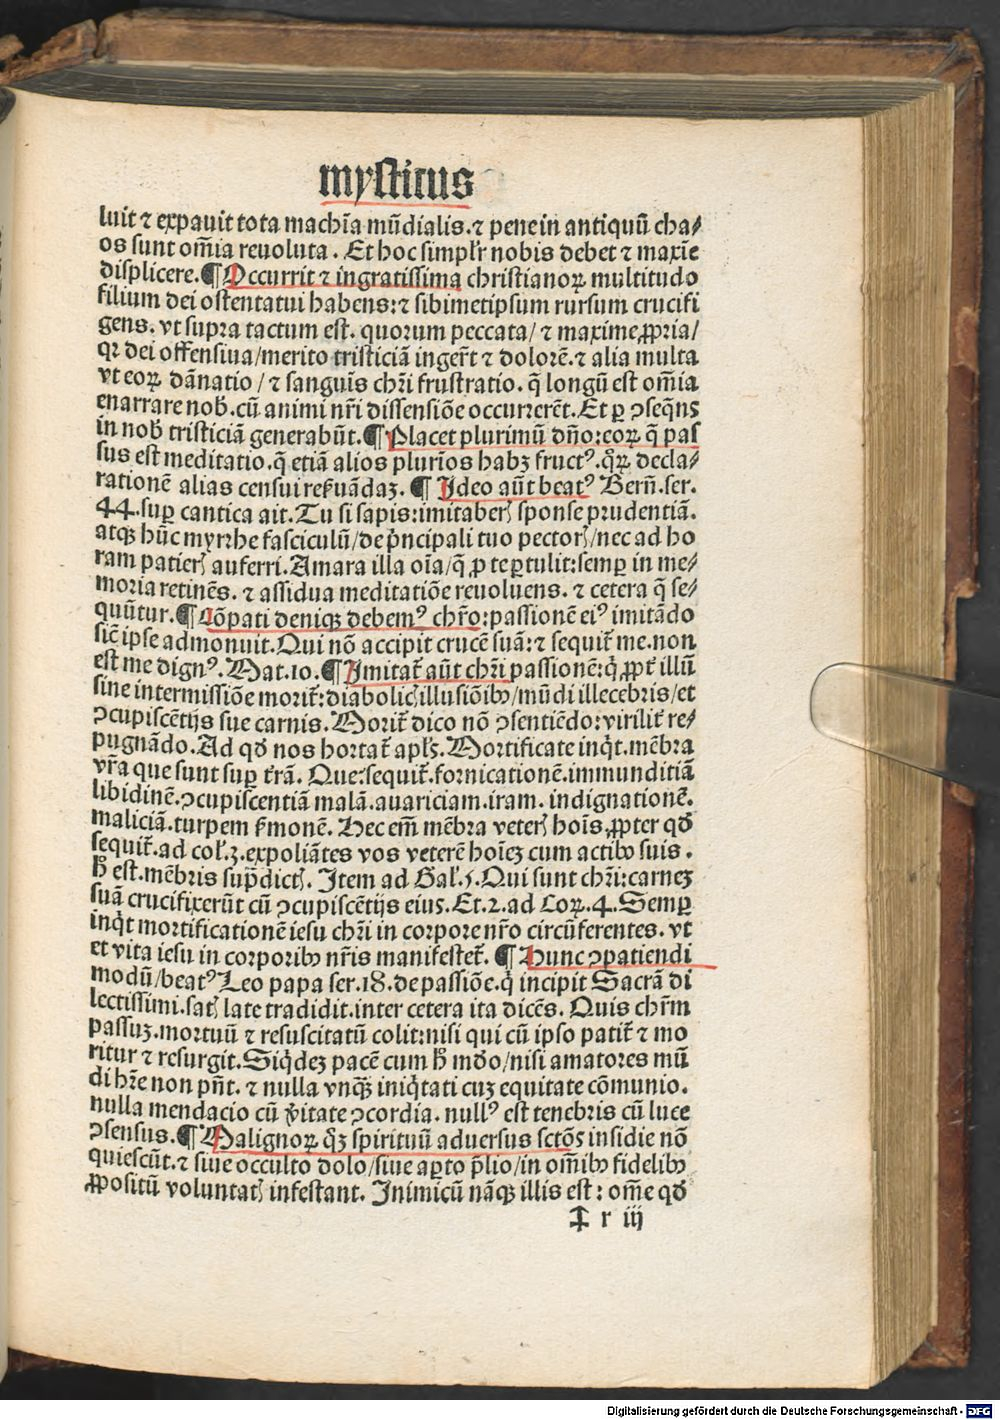 mysticus
luit ⁊ expauit tota machĩa mũdialis.⁊ pene in antiquũ cha⸗
os sunt om̃ia reuoluta. Et hoc simpłr nobis debet ⁊ maxĩe
displicere.¶Occurrit ⁊ ingratissima christianoꝝ multitudo
filium dei ostentatui habens:⁊ sibimetipsum rursum crucifi
gens. vt supra tactum est. quorum peccata/ ⁊ maxime ꝓpria/
qꝛ dei offensiua/merito tristiciã inger̃t ⁊ dolorẽ.⁊ alia multa
vt eoꝝ dãnatio/⁊ sanguĩs chr̃i frustratio. q̃ longũ est om̃ia
enarrare nob̃. cũ animi nr̃i dissensiõe occurrerẽt. Et ꝑ ↄseq̃ns
in nob̃ tristiciã generabũt.¶Placet plurimũ dño:eoꝝ q̃ pas
sus est meditatio.q̃ etiã alios plurĩos habꝫ fructꝰ.q̃ꝝ decla⸗
rationẽ alias censui reẜuãdaꝫ.¶ Ideo aũt beatꝰ Berñ.ser.
44.suꝑ cantica ait.Tu si sapis:imitaberꝭ sponse prudentiã.
atqꝫ hũc myrrhe fasciculũ/de p̃ncipali tuo pectorꝭ/nec ad ho
ram patierꝭ auferri.Amara illa oĩa/q̃ ꝓ te ꝑtulit:semꝑ in me⸗
moria retinẽs. ⁊ assidua meditatiõe reuoluens. ⁊ cetera q̃ se⸗
quũtur.¶Cõpati deniqꝫ debemꝰ chr̃o:passionẽ eiꝰ imitãdo
sic̃ ipse admonuit.Qui nõ accipit crucẽ suã:⁊ sequit̃ me.non
est me dignꝰ.Mat.10.¶Imitat̃ aũt chr̃i passionẽ:q̇ ꝓpt̃ illũ
sine intermissiõe morit̃:diabolicꝭ illusiõibꝰ/mũdi illecebris/et
ↄcupiscẽtijs sue carnis.Morit̃ dico nõ ↄsentiẽdo:virilit̃ re⸗
pugnãdo.Ad qđ nos hortat̃ apłs.Mortificate inq̇t.mẽbra
vr̃a que sunt suꝑ t̃rã. Que:sequit̃.fornicationẽ.immunditiã
libidinẽ.ↄcupiscentiã malã.auariciam.iram. indignationẽ.
maliciã.turpem ẜmonẽ. Hec em̃ mẽbra veterꝭ hoĩs,ꝓpter qđ
sequit̃.ad coł.3.expoliãtes vos veterẽ hoĩeꝫ cum actibꝰ suis.
h̃ est.mẽbris sup̃dictꝭ. Item ad Gał.5.Qui sunt chr̃i:carneꝫ
suã crucifixerũt cũ ↄcupiscẽtijs eius.Et.2.ad Coꝝ.4.Semꝑ
inq̇t mortificationẽ iesu chr̃i in corpore nr̃o circũferentes. vt
et vita iesu in corporibꝰ nr̃is manifestet̃.¶Hunc ↄpatiendi
modũ/beatꝰ Leo papa ser.18.de passiõe.q̇ incipit Sacrã di
lectissimi.satꝭ late tradidit.inter cetera ita dicẽs. Quis chr̃m
passuꝫ.mortuũ ⁊ resuscitatũ colit:nisi qui cũ ipso patit̃ ⁊ mo
ritur ⁊ resurgit.Siq̇deꝫ pacẽ cum h̃ mđo/nisi amatores mũ
di hr̃e non pñt. ⁊ nulla vnqꝫ̃ iniq̇tati cuꝫ equitate cõmunio.
nulla mendacio cũ v̾itate ↄcordia. nullꝰ est tenebris cũ luce
ↄsensus.¶Malignoꝝ q̇ꝫ spirituũ aduersus sctõs insidie nõ
quiescũt.⁊ siue occulto dolo/siue aꝑto p̃lio/in om̃ibꝰ fidelibꝰ
ꝓpositũ voluntatꝭ infestant. Inimicũ nãqꝫ illis est: om̃e qđ
‡ r iij
Digitalisierung gefördert durch die Deutsche Forschungsgemeinschaft - DFG